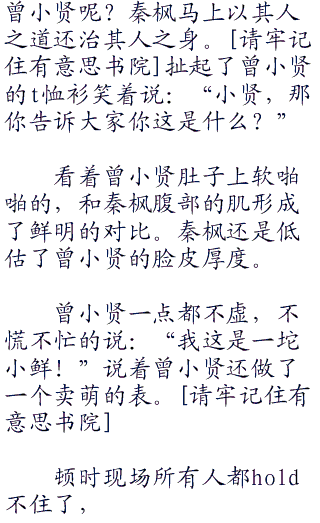 曾小贤呢？秦枫马上以其人
之道还治其人之身。[请牢记
住有意思书院]扯起了曾小贤
的t恤衫笑着说：“小贤，那
你告诉大家你这是什么？”
看着曾小贤肚子上软啪
啪的，和秦枫腹部的肌形成
了鲜明的对比。秦枫还是低
估了曾小贤的脸皮厚度。
曾小贤一点都不虚，不
慌不忙的说：“我这是一坨
小鲜！”说着曾小贤还做了
一个卖萌的表。[请牢记住有
意思书院]
顿时现场所有人都hold
不住了，